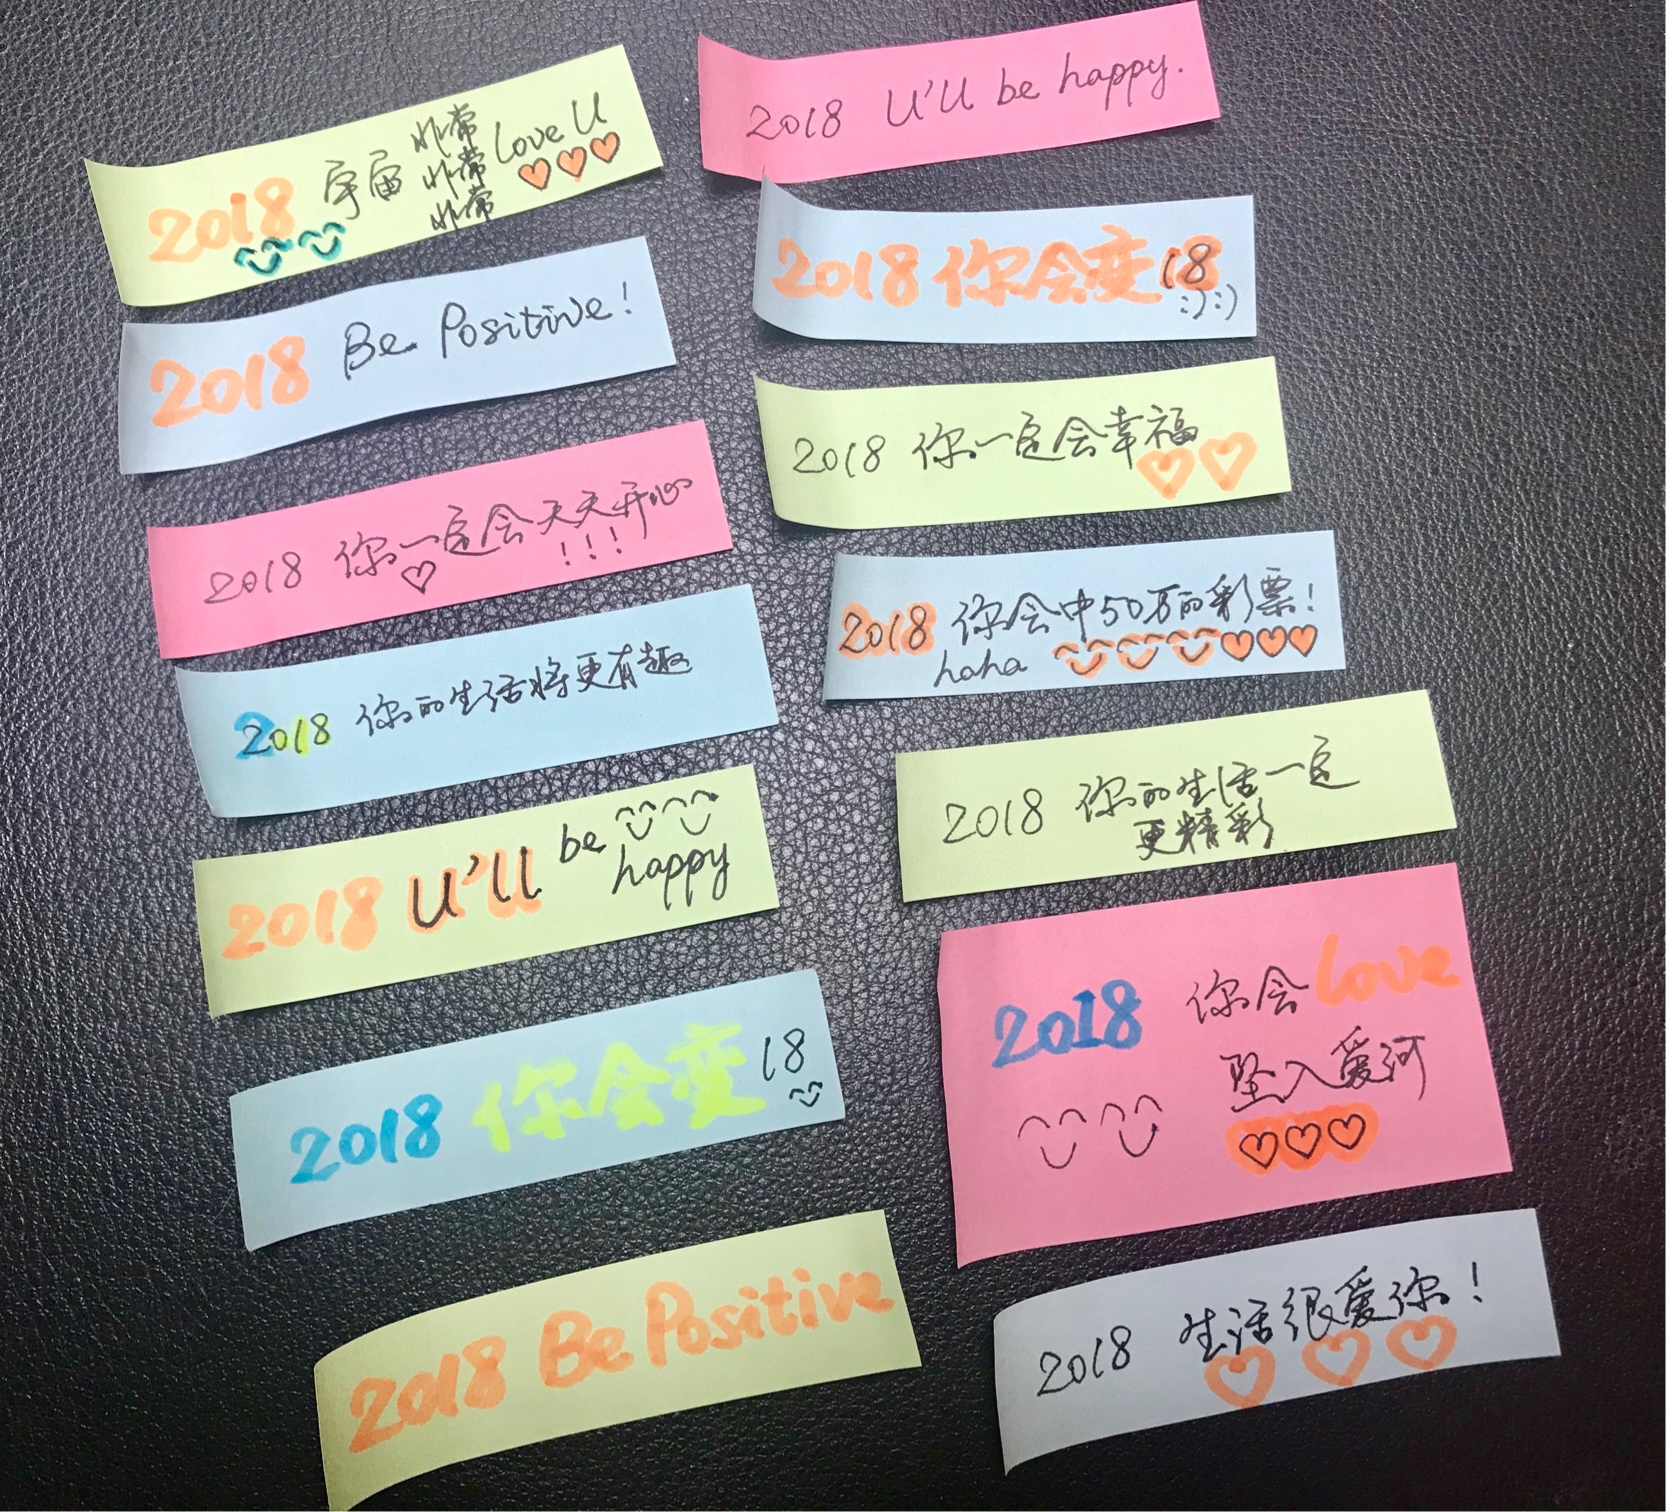 2018 宇宙 非常 love U
非常
非常
2018 Be Positive!
2018 你一定会天天开心
!!!
2018 你的生活将更有趣
2018 U'll be
happy
2018 你会变 18
2018 Be Positive
2018 U'll be happy.
2018 你会变 18
:) :)
2018 你一定会幸福
2018 你会中50万的彩票!
haha
2018 你的生活一定
更精彩
2018 你会 love
坠入爱河
2018 生活很爱你!